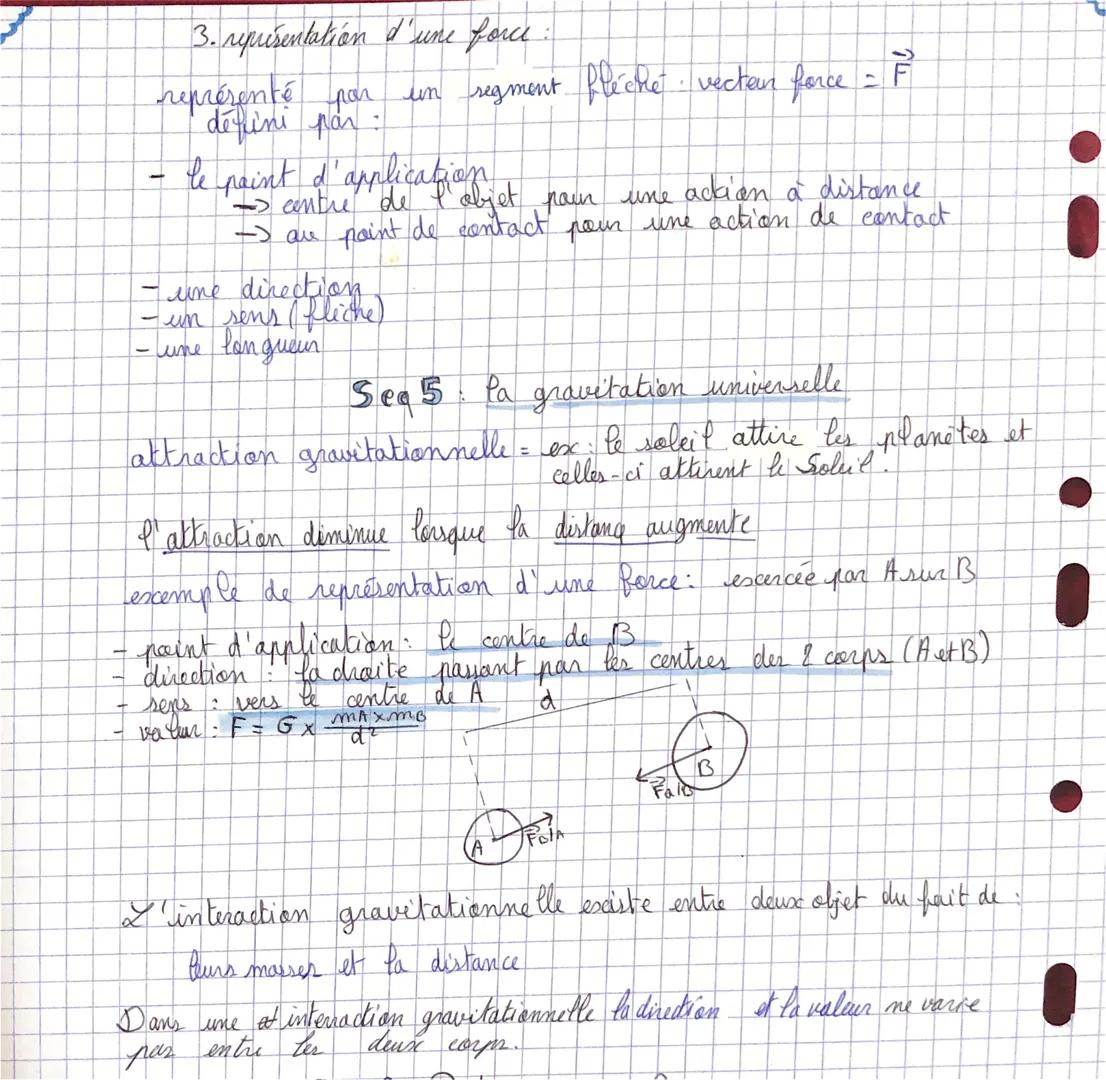 3. représentation d'une force :
représenté par un segment fléché : vecteur force = F
défini par :
- le point d'application
-> centre de l'objet pour une action à distance
-> au point de contact pour une action de contact
- une direction
- un sens (flèche)
- une longueur
Seq 5 : la gravitation universelle
attraction gravitationnelle = ex : le soleil attire les planètes et
celles-ci attirent le Soleil.
l'attraction diminue lorsque la distanc augmente
exemple de représentation d'une force : exercée par A sur B
- point d'application : le centre de B
- direction : la droite passant par les centres des 2 corps (A et B)
- sens : vers le centre de A
- valeur : F = G × mA × mB / d²
d
B
Fa/B
A
FB/A
L'interaction gravitationnelle existe entre deux objet du fait de :
leurs masses et la distance
Dans une interraction gravitationnelle la direction et la valeur ne varie
pas entre les deux corps.